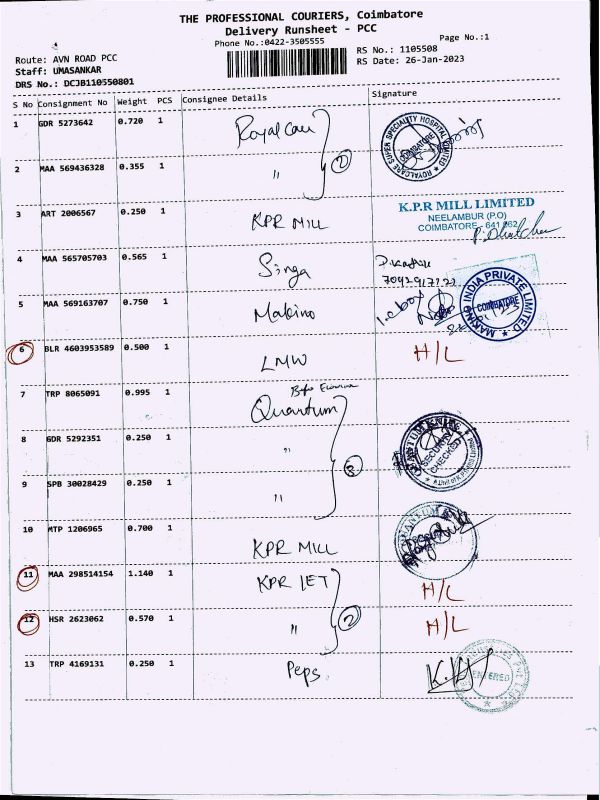 THE PROFESSIONAL COURIERS, Coimbatore
Delivery Runsheet - PCC
Phone No.:0422-3505555
Page No.:1
Route: AVN ROAD PCC
RS No.: 1105508
Staff: UMASANKAR
RS Date: 26-Jan-2023
DRS No.: DCJB110550801
S No Consignment No Weight PCS Consignee Details Signature
1 GDR 5273642 0.720 1 Royalcare
ROYALCARE SUPER SPECIALITY HOSPITAL LIMITED COIMBATORE
2 MAA 569436328 0.355 1 " 2
3 ART 2006567 0.250 1 KPR MILL
K.P.R MILL LIMITED
NEELAMBUR (P.O)
COIMBATORE - 641 062
4 MAA 565705703 0.565 1 Singa
5 MAA 569163707 0.750 1 Makino
MAKINO INDIA PRIVATE LIMITED COIMBATORE
6 BLR 4603953589 0.500 1 LMW H/L
7 TRP 8065091 0.995 1 Quantum
8 GDR 5292351 0.250 1 "
SECURITY CHECKED
9 SPB 30028429 0.250 1 " 3
10 MTP 1206965 0.700 1 KPR MILL
11 MAA 298514154 1.140 1 KPR JET H/L
12 HSR 2623062 0.570 1 " 2 H/L
13 TRP 4169131 0.250 1 Peps
ENTERED